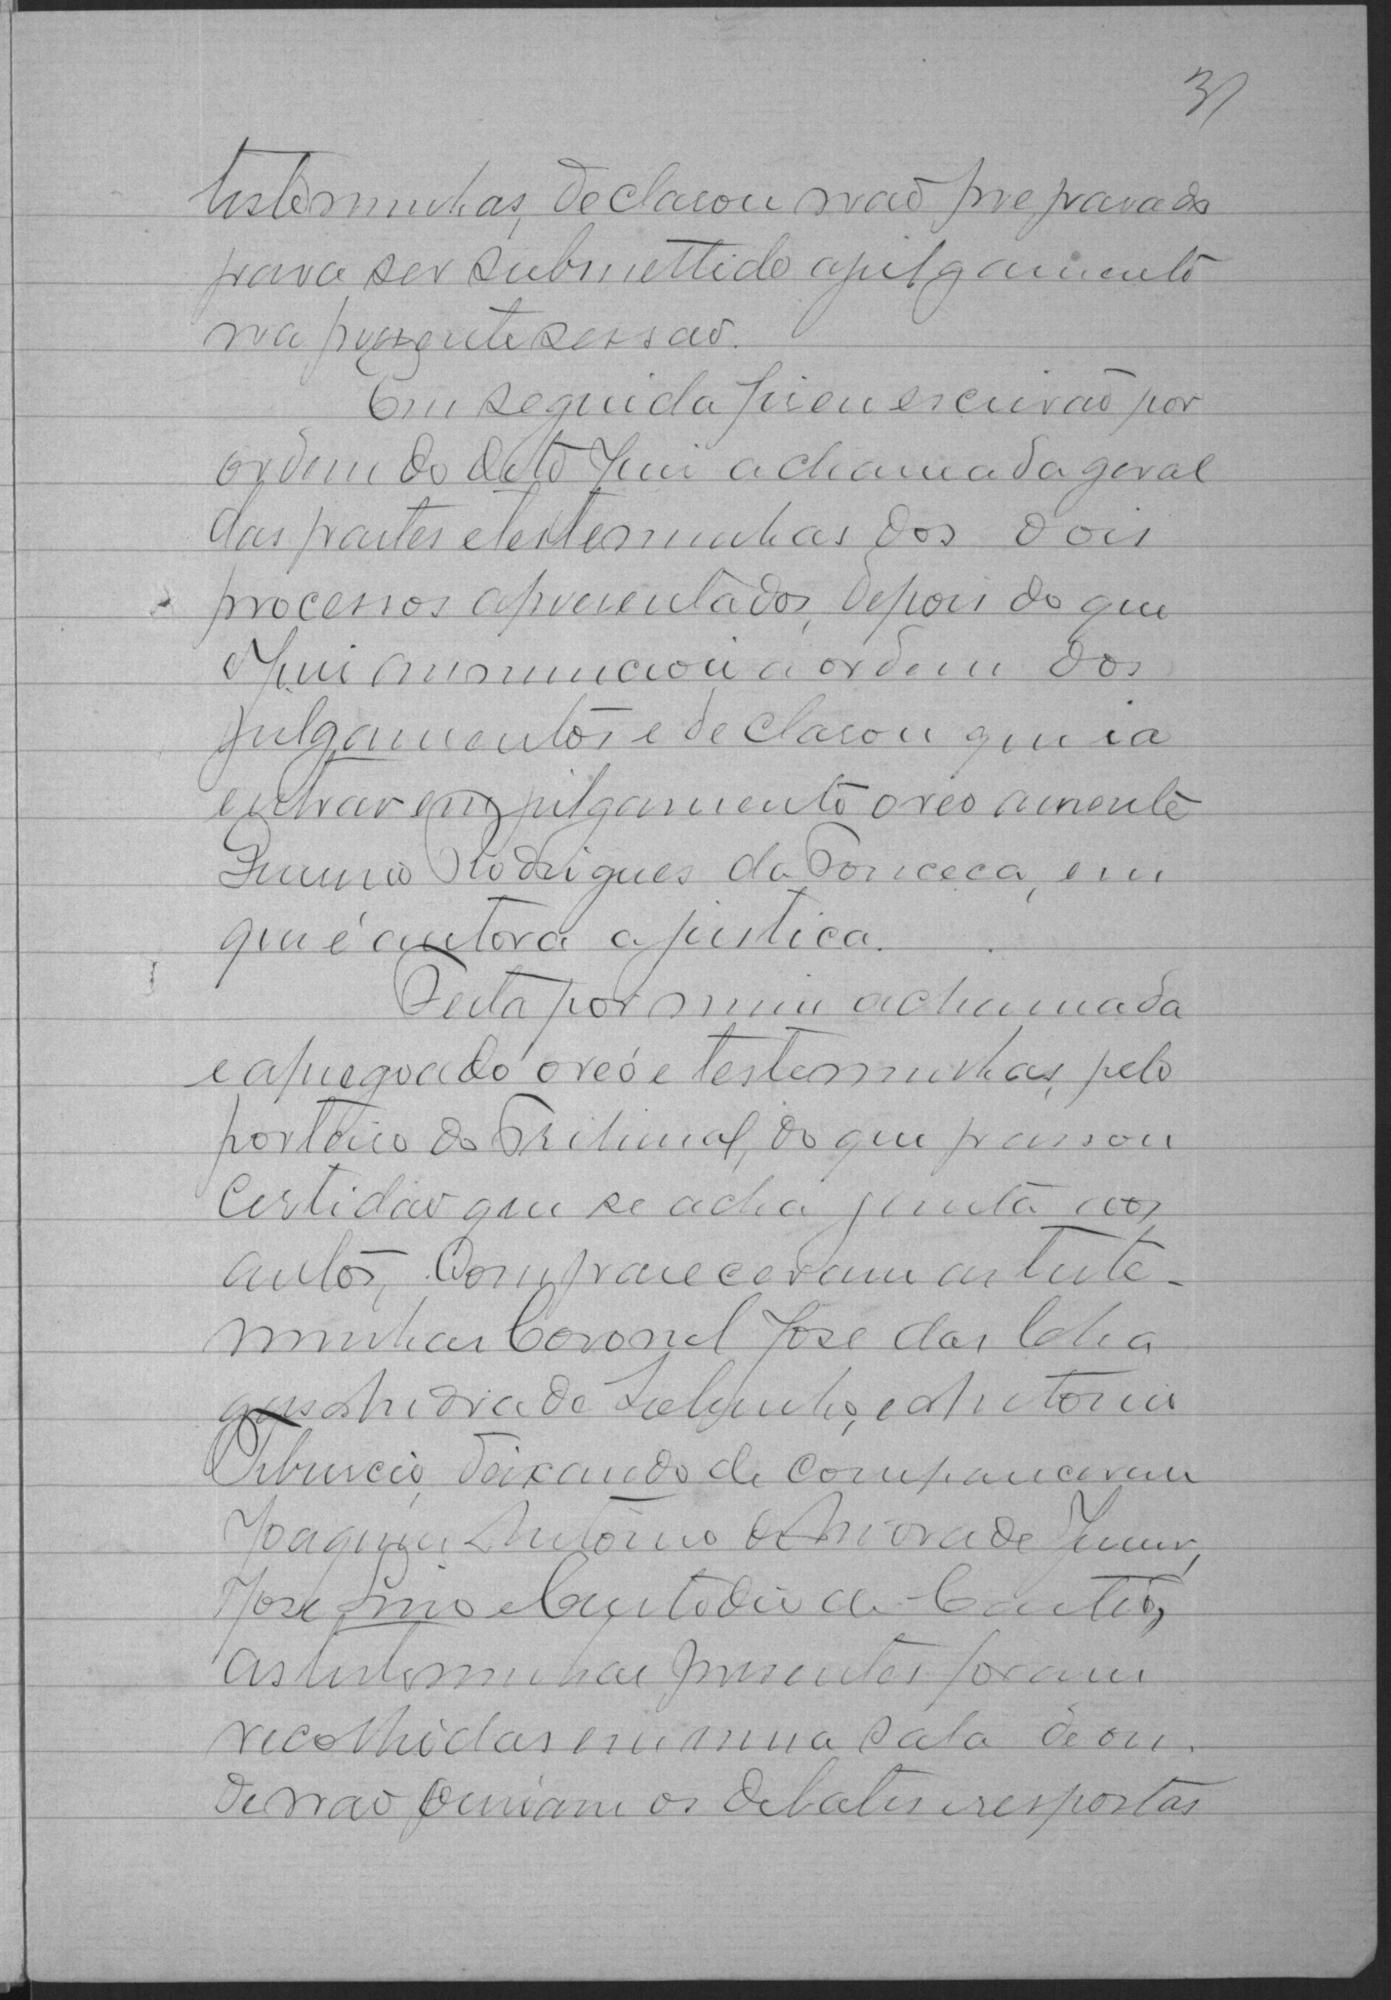 31
testeminhas, declarou não preparado
para ser submettido a julgamento
na presente sessão.
Em seguida fiz eu escrivão por
ordem do dito Juiz a chamada geral
das partes e testeminhas dos dois
processos apresentados, depois do que
o Juiz annunciou a ordem dos
julgamentos e declarou que ia
entrar em julgamento o reo auzente
Rodrigues da Fonceca, em
que é autora a justica.
Feita por mim a chamada
e apregoado o reo e testeminhas, pelo
porteiro do Tribunal, do que passou
certidão que se acha junta aos
autos, Compareceram as teste-
minhas Coronel José das Cha
gas Andrade e Antonio
Tiburcio, deixando de comparecerem
Joaquim Antonio de Andrade Junior,
José e Custodio de Castro,
as testeminhas presentes foram
recolhidas em uma sala de on.
de não ouviam os debates e respostas